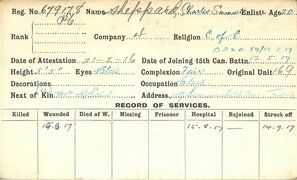 Reg. No. 679178 Name Sheppard, Charles Samuel Enlistt. Age 20
Rank Pte. Company A Religion C. of E.
Date of Attestation 21-2-16 Date of Joining 15th Can. Battn. 12 5 17
Height 5' 5" Eyes Blue Complexion Fair Original Unit 169
Decorations Occupation
Next of Kin Mrs Address,
RECORD OF SERVICES.
Killed Wounded Died of W. Missing Prisoner Hospital Rejoined Struck off
15.8.17 15-8-17 14.9.17